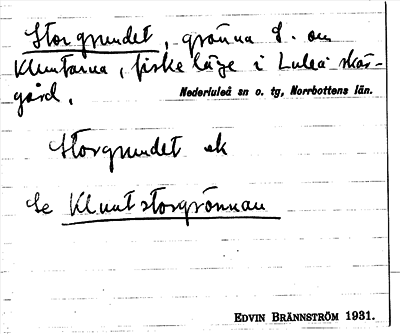 Storgrundet, grönna S. om
Kluntarna, fiskeläge i Luleå skär-
gård. Nederluleå sn o. tg, Norrbottens län.
Storgrundet ek
Se Kluntstorgrönnan
EDVIN BRÄNNSTRÖM 1931.